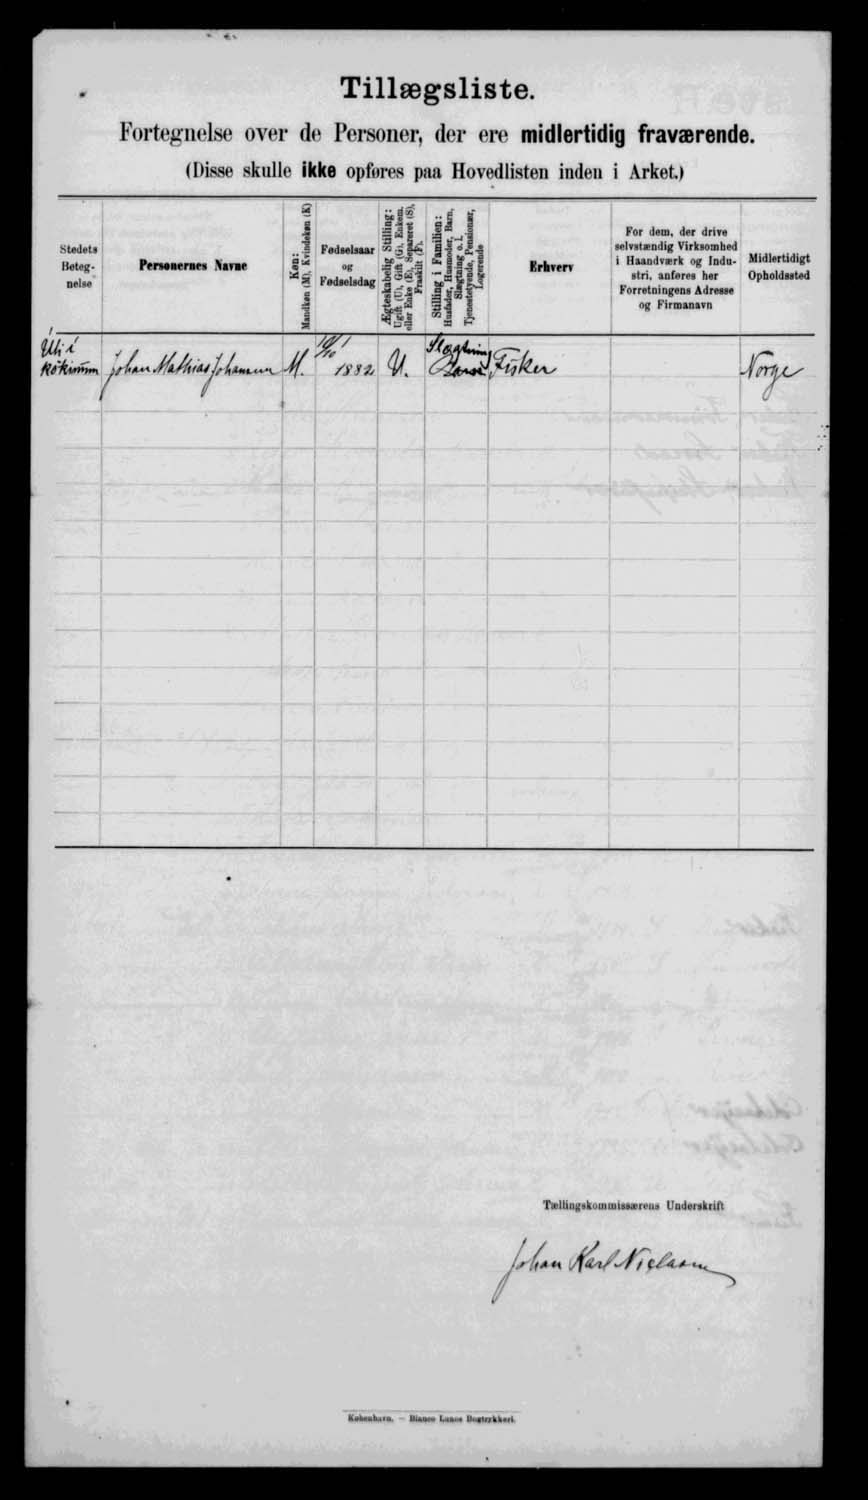 Tillægsliste.
Fortegnelse over de Personer, der ere midlertidig fraværende.
(Disse skulle ikke opføres paa Hovedlisten inden i Arket.)
Stedets
Beteg-
nelse
Personernes Navne
Køn:
Mandkøn (M), Kvindekøn (K)
Fødselsaar
og
Fødselsdag
Ægteskabelig Stilling:
Ugift (U), Gift (G), Enkem.
eller Enke (E), Separeret (S),
Fraskilt (F).
Stilling i Familien:
Husfader, Husmoder, Barn,
Slægtning o. l.
Tjenestetyende, Pensionær,
Logerende
Erhverv
For dem, der drive
selvstændig Virksomhed
i Haandværk og Indu-
stri, anføres her
Forretningens Adresse
og Firmanavn
Midlertidigt
Opholdssted
Uti i
Køkinum Johan Mathias Johansen M. 1882 U. Slægtning Fisker Norge
Tællingskommissærens Underskrift
Johan Karl Nielsen
København. — Bianco Lunos Bogtrykkeri.